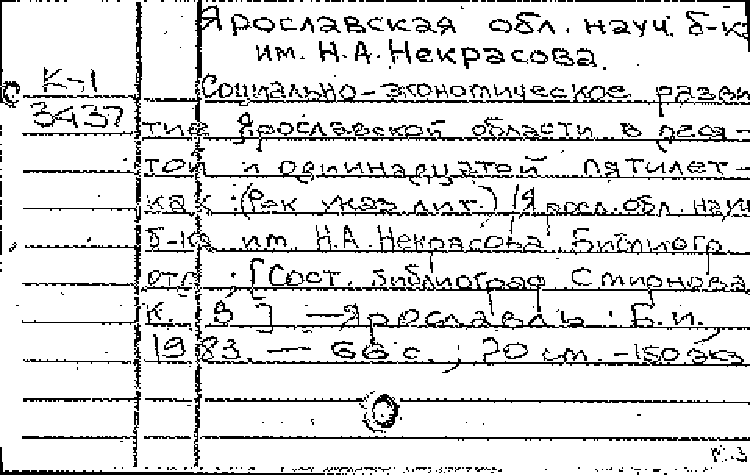 Ярославская обл. науч. б-ка
им. Н.А. Некрасова.
К-1
3437
Социально-экономическое разви
тие Ярославской области в деся-
той и одиннадцатой пятилет-
ках: (Рек указ. лит.) / Яросл. обл. науч
б-ка им. Н.А. Некрасова Библиогр.
отд.; [Сост. библиограф Смирнова
К. В.] – Ярославль: Б.и.,
1983. – 66 с.; 20 см. - 150 экз